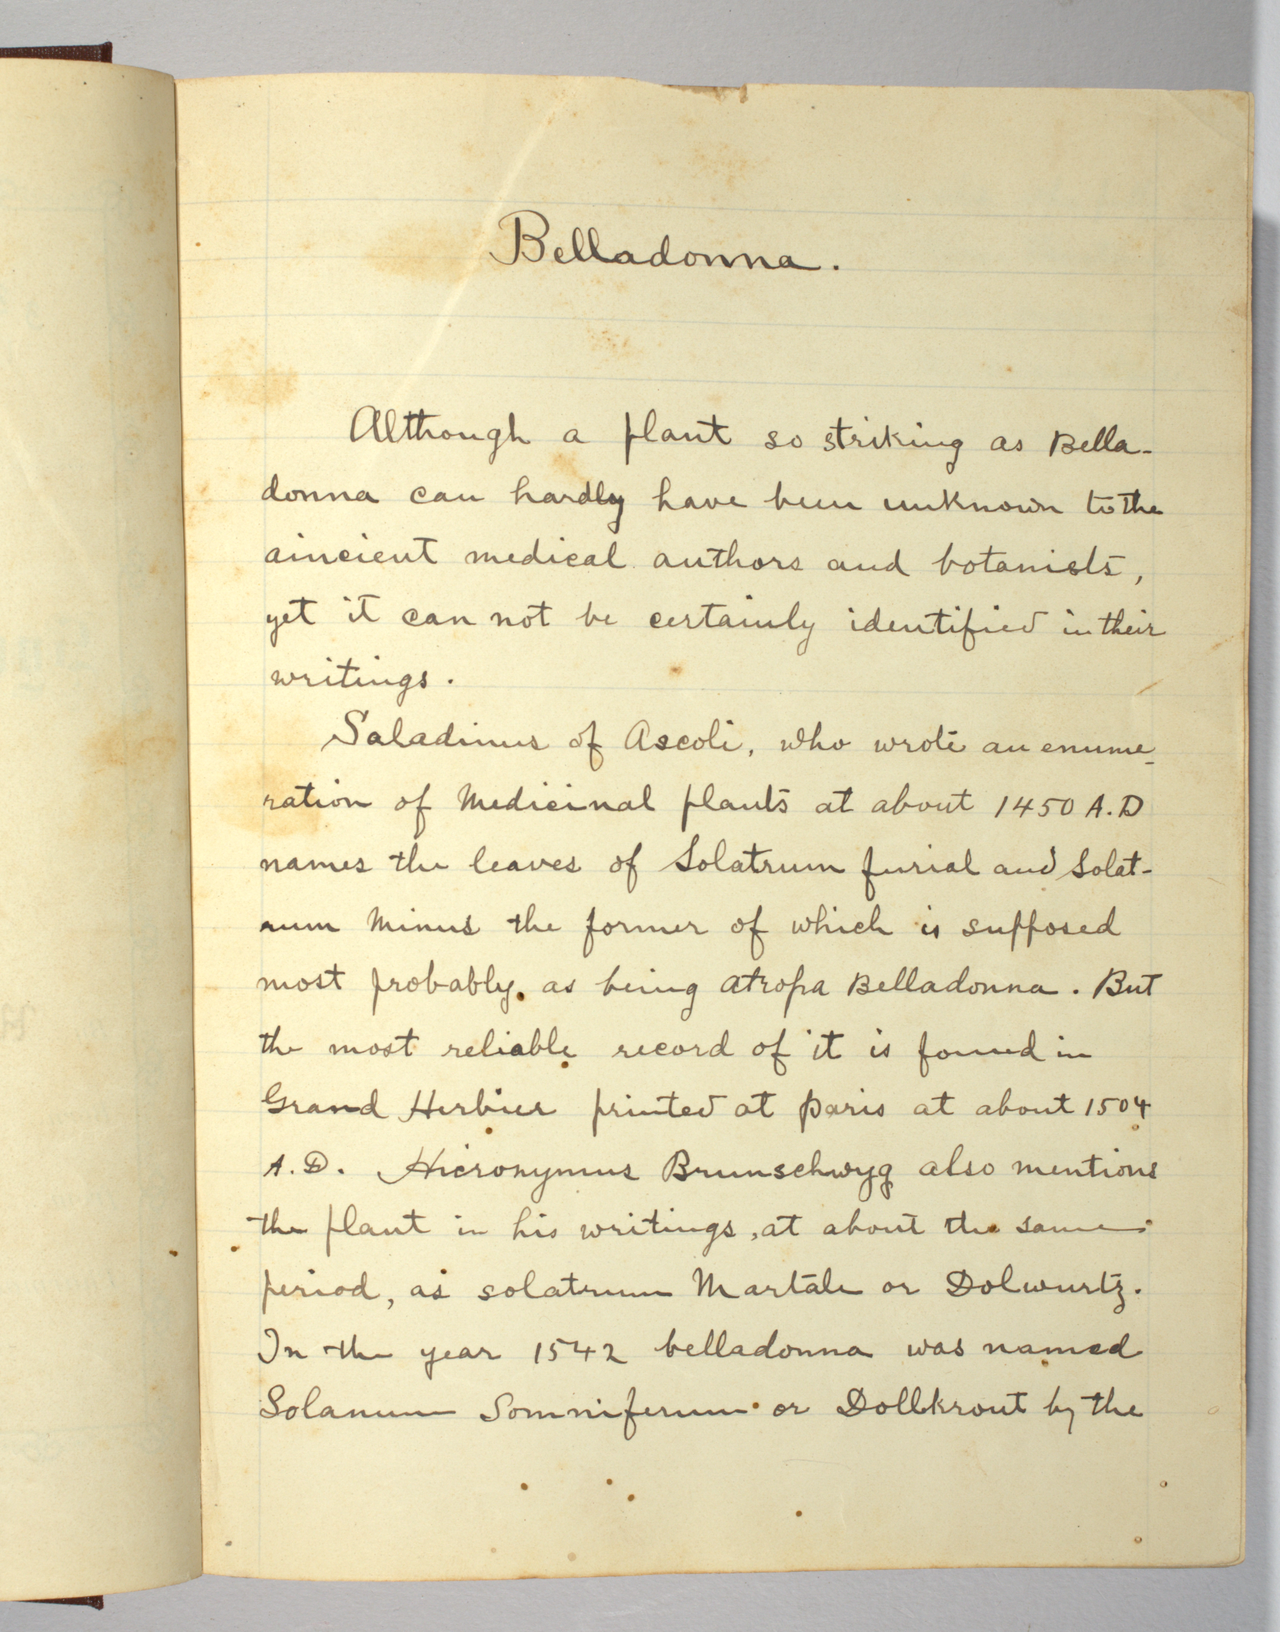 Belladonna.
Although a plant so striking as Bella-
donna can hardly have been unknown to the
aincient medical authors and botanists,
yet it can not be certainly identified in their
writings.
Saladinus of Ascoli, who wrote an enume-
ration of Medicinal plants at about 1450 A.D
names the leaves of Solatrum furial and Solat-
rum Minus the former of which is supposed
most probably, as being Atropa Belladonna. But
the most reliable record of it is found in
Grand Herbier printed at Paris at about 1504
A.D. Hieronymus Brunschwyg also mentions
the plant in his writings, at about the same
period, as solatrum Martale or Dolwurtz.
In the year 1542 belladonna was named
Solanum Somniferum or Dollkrout by the